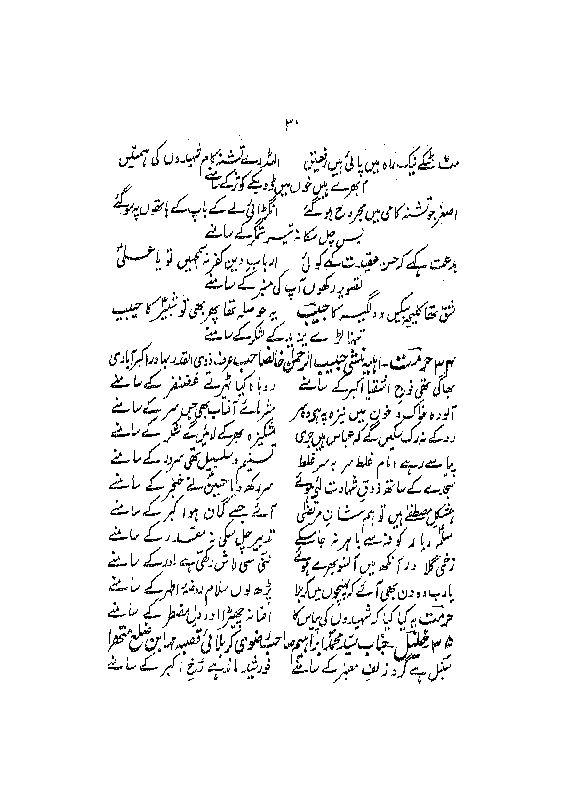 ۳۰
مٹ چکے نیک راہ میں پائی ہیں رفعتیں اللہ رے تشنہ کام شہیدوں کی ہمتیں
ابھرے ہیں خوں میں ڈوب کے کوثر کے سامنے
اصغر جو تشنہ کامی میں مجروح ہو گئے انگڑائی لے کے باپ کے ہاتھوں پہ سو گئے
بس چل سکا نہ تیر ستمگر کے سامنے
بدعت کہے کہ حسن عقیدت کہے کوئی ارباب دین کفر نہ سمجھیں تو یا علی
تصویر رکھوں آپ کی منبر کے سامنے
شق تھا کلیجہ بیکس و دلگیر کا حبیب یہ حوصلہ تھا پھر بھی تو شبیر کا حبیب
تنہا لڑے یزید کے لشکر کے سامنے
۳۴ حرمت ۔ اہلیہ منشی حبیب الرحمٰن خانصاحب عرف ذوی القدر بہادر اکبرآبادی
بھاگی تھی فوج اشقیا اکبر کے سامنے روباہ کیا ٹھہرتے غضنفر کے سامنے
آلودہ خاک و خون میں نیزہ پہ ہے وہ سر شرمائے آفتاب بھی جس سر کے سامنے
روکے نہ رک سکیں گے کہ عباس ہیں جری مشکیزہ بھر کے لائیں گے لشکر کے سامنے
پیاسے رہے امام غلط سر بہ سر غلط تسنیم و سلسبیل تھی سرور کے سامنے
سجدے کے ساتھ ذوق شہادت لئے ہوئے سر رکھدیا حسین نے خنجر کے سامنے
ہمشکل مصطفےٰ ہیں تو ہم شان مرتضیٰ آئے جسے گمان ہو اکبر کے سامنے
مسلم رہا نہ کوفہ سے باہر نہ جا سکے تدبیر چل سکی نہ مقدر کے سامنے
زخمی گلا اور آنکھ میں آنسو بھرے ہوئے ننھی سی لاش رکھی ہے مادر کے سامنے
یارب وہ دن بھی آئے کہ پہنچوں میں کربلا پڑھ لوں سلام روضہ اطہر کے سامنے
حرمت یہ کیا کیا کہ شہیدوں کی پیاس کا افسانہ چھیڑا اور دل مضطر کے سامنے
۳۵ خلیل ۔ جناب سید محمد ابراہیم صاحب رضوی کربلائی قصبہ مہابن ضلع متھرا
سنبل ہے گرد زلف معنبر کے سامنے خورشید ماند ہے رخ اکبر کے سامنے